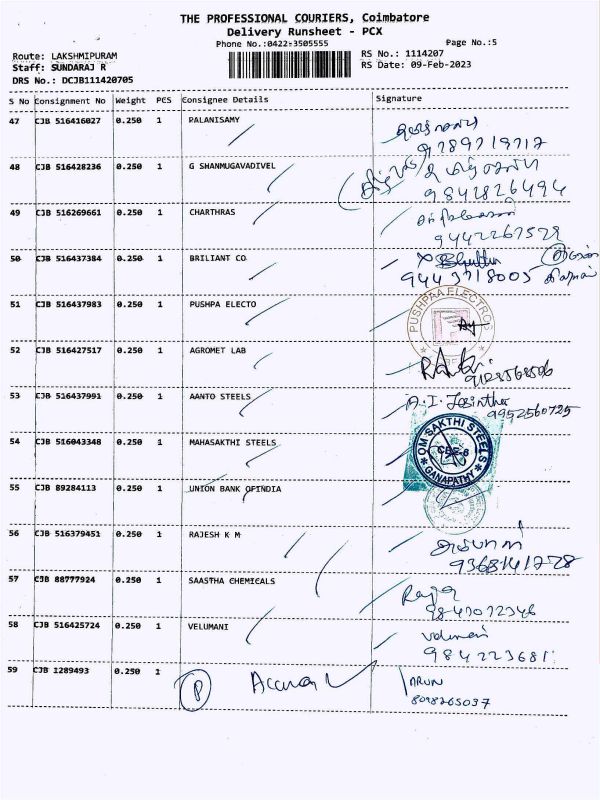 THE PROFESSIONAL COURIERS, Coimbatore
Delivery Runsheet - PCX
Phone No.:0422-3505555
Page No.:5
Route: LAKSHMIPURAM
RS No.: 1114207
Staff: SUNDARAJ R
RS Date: 09-Feb-2023
DRS No.: DCJB111420705
S No Consignment No Weight PCS Consignee Details Signature
47 CJB 516416027 0.250 1 PALANISAMY
9789719717
48 CJB 516428236 0.250 1 G SHANMUGAVADIVEL
9842826494
49 CJB 516269661 0.250 1 CHARTHRAS
9442267529
50 CJB 516437384 0.250 1 BRILIANT CO
9443718005
51 CJB 516437983 0.250 1 PUSHPA ELECTO
PUSHPAA ELECTROS
52 CJB 516427517 0.250 1 AGROMET LAB
53 CJB 516437991 0.250 1 AANTO STEELS
A. I. Josinther
9952560725
54 CJB 516043348 0.250 1 MAHASAKTHI STEELS
OM SAKTHI STEELS
CBE-6
GANAPATHY
55 CJB 89284113 0.250 1 UNION BANK OFINDIA
56 CJB 516379451 0.250 1 RAJESH K M
57 CJB 88777924 0.250 1 SAASTHA CHEMICALS
Raja
9843072346
58 CJB 516425724 0.250 1 VELUMANI
984223681
59 CJB 1289493 0.250 1
P
ARUN
8098265037